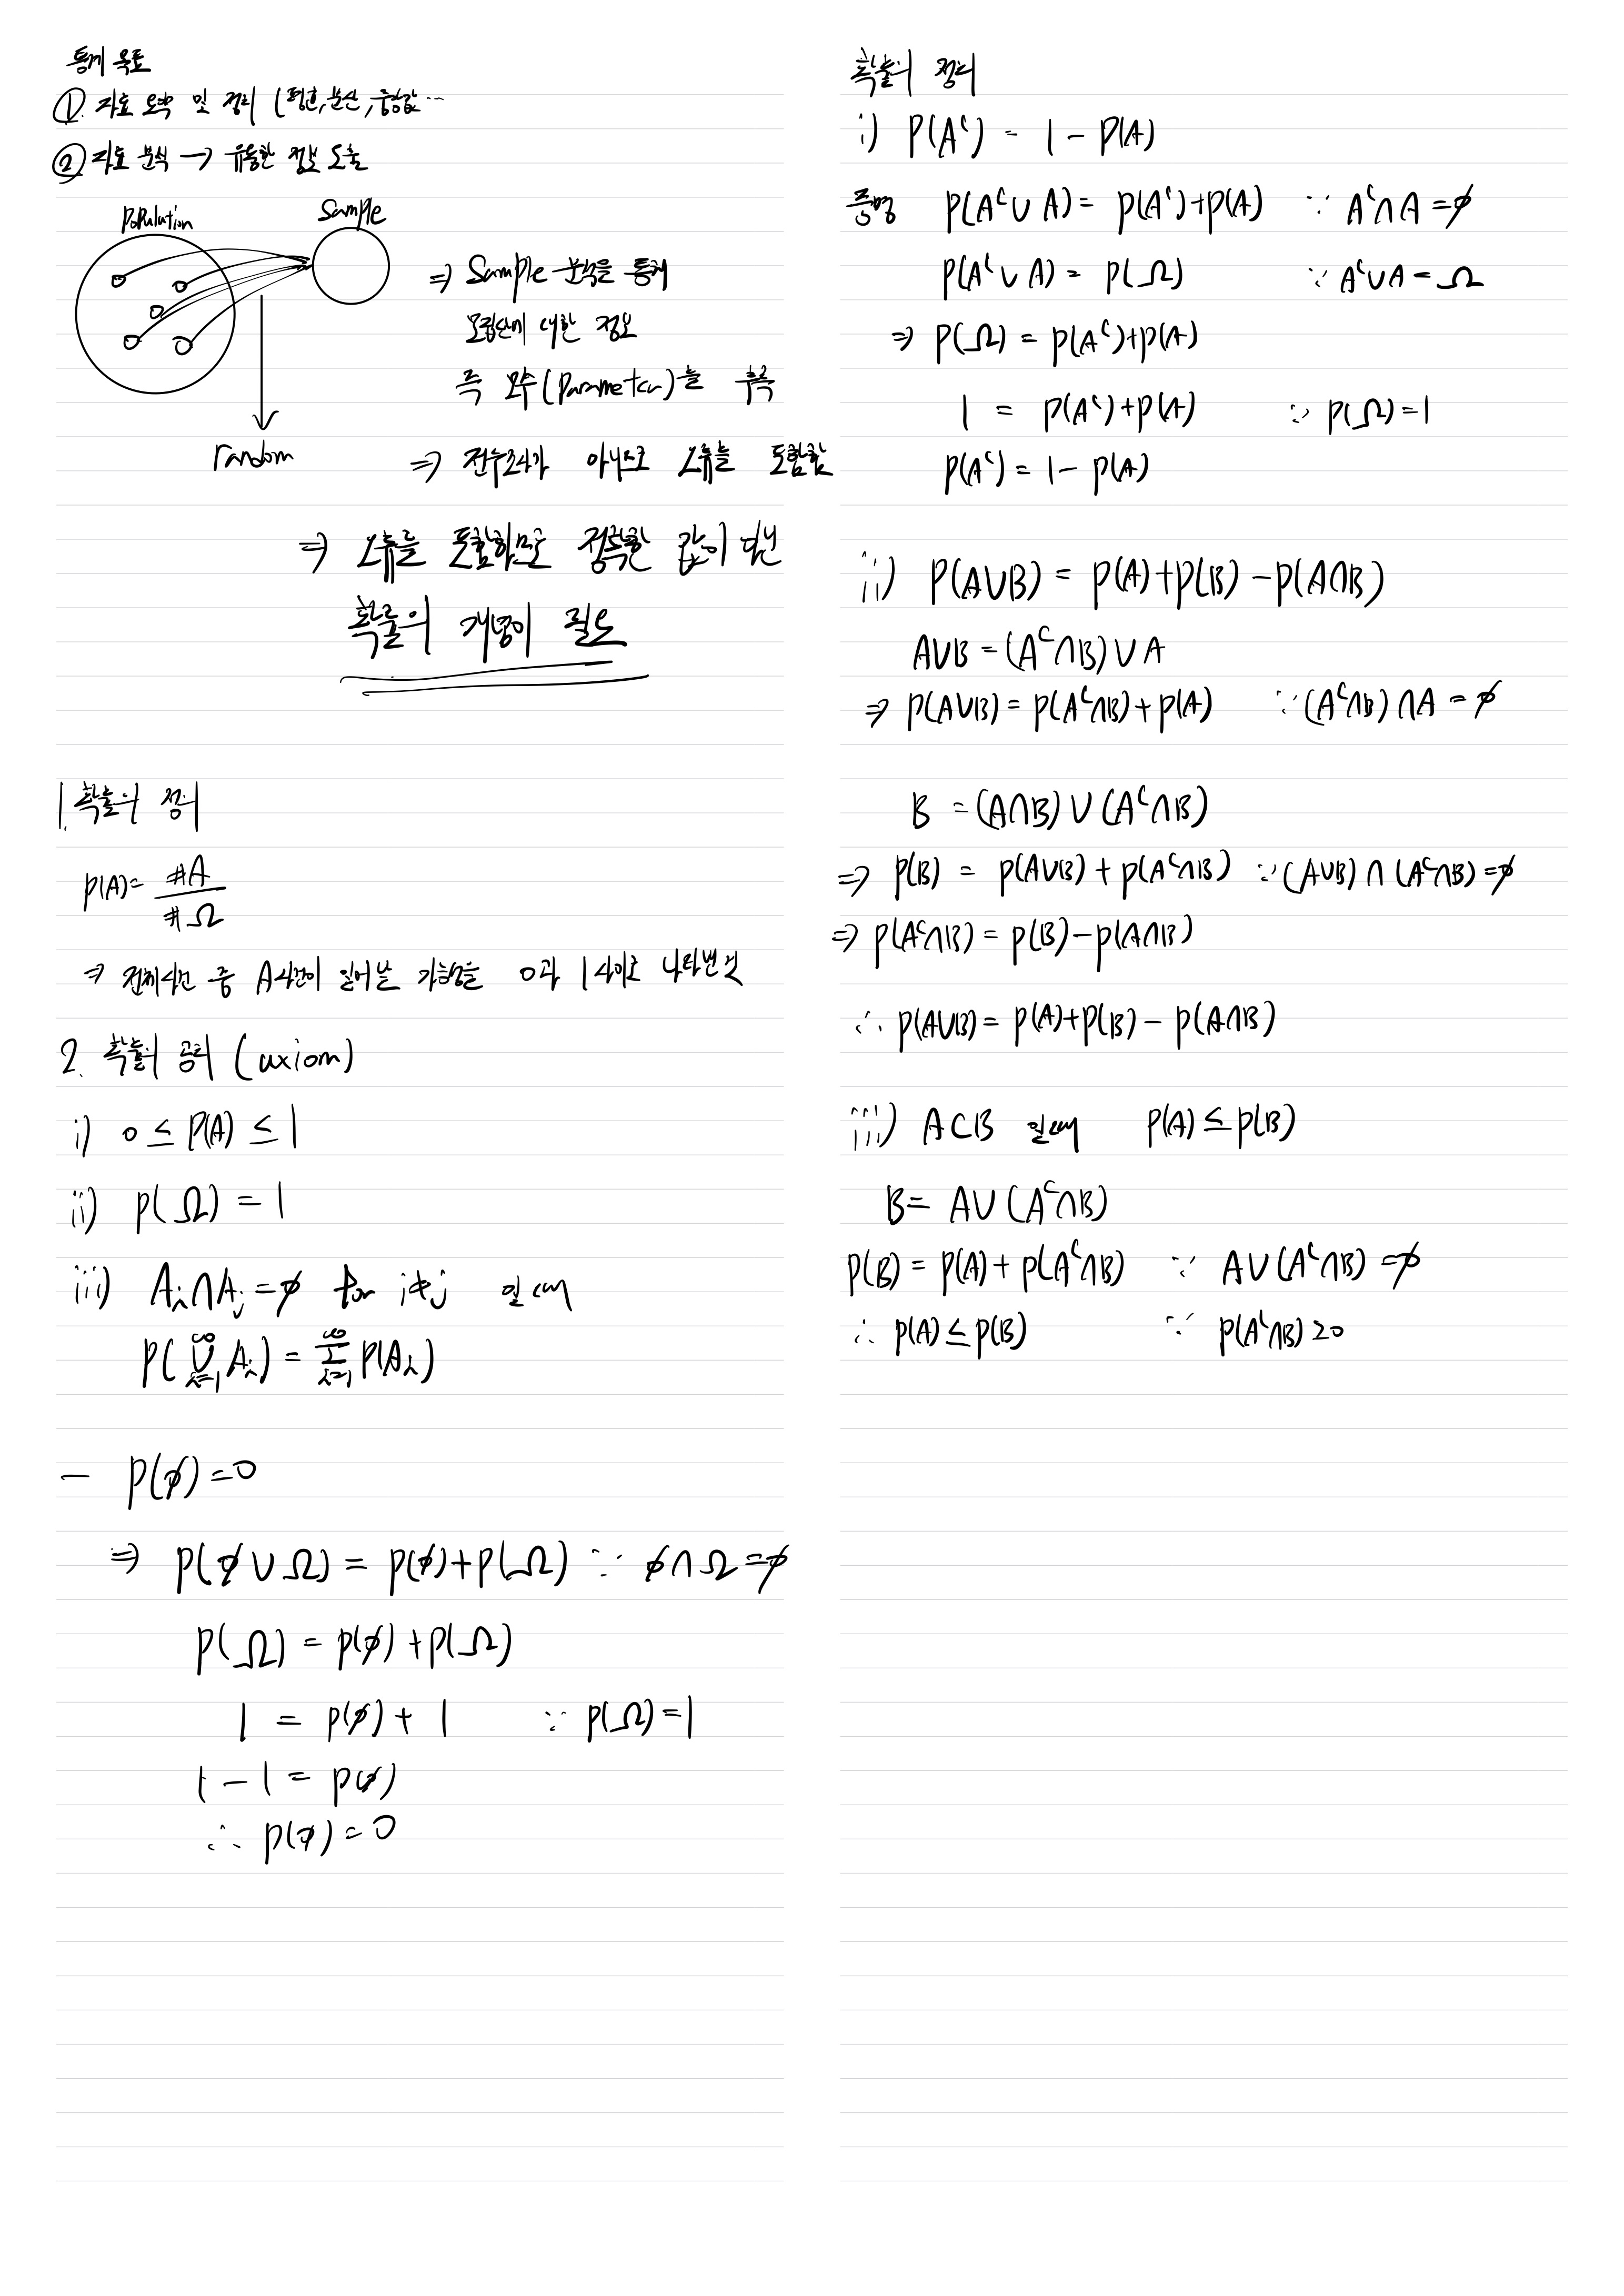 통계 목표
① 자료 요약 및 정리 (평균, 분산, 중앙값 ...
② 자료 분석 → 유용한 정보 도출
population
sample
random
⇒ Sample 분석을 통해
모집단에 대한 정보
즉 모수(parameter)를 추측
⇒ 전수조사가 아니므로 오류를 포함함
⇒ 오류를 포함하므로 정확한 값이 아닌
확률의 개념이 필요
1. 확률의 정의
P(A) = #A / #Ω
⇒ 전체사건 중 A사건이 일어날 가능성을 0과 1 사이로 나타낸 것
2. 확률의 공리 (axiom)
i) 0 ≤ P(A) ≤ 1
ii) P(Ω) = 1
iii) Aᵢ∩Aⱼ = ∅ for i≠j 일 때
P(⋃_{i=1}^{∞} Aᵢ) = Σ_{i=1}^{∞} P(Aᵢ)
- P(∅) = 0
⇒ P(∅ ∪ Ω) = P(∅) + P(Ω) ∵ ∅ ∩ Ω = ∅
P(Ω) = P(∅) + P(Ω)
1 = P(∅) + 1 ∵ P(Ω) = 1
1 - 1 = P(∅)
∴ P(∅) = 0
확률의 정리
i) P(Aᶜ) = 1 - P(A)
증명 P(Aᶜ ∪ A) = P(Aᶜ) + P(A) ∵ Aᶜ ∩ A = ∅
P(Aᶜ ∪ A) = P(Ω) ∵ Aᶜ ∪ A = Ω
⇒ P(Ω) = P(Aᶜ) + P(A)
1 = P(Aᶜ) + P(A) ∵ P(Ω) = 1
P(Aᶜ) = 1 - P(A)
ii) P(A∪B) = P(A) + P(B) - P(A∩B)
A∪B = (Aᶜ∩B) ∪ A
⇒ P(A∪B) = P(Aᶜ∩B) + P(A) ∵ (Aᶜ∩B) ∩ A = ∅
B = (A∩B) ∪ (Aᶜ∩B)
⇒ P(B) = P(A∪B) + P(Aᶜ∩B) ∵ (A∪B) ∩ (Aᶜ∩B) = ∅
⇒ P(Aᶜ∩B) = P(B) - P(A∩B)
∴ P(A∪B) = P(A) + P(B) - P(A∩B)
iii) A⊂B 일 때 P(A) ≤ P(B)
B = A∪(Aᶜ∩B)
P(B) = P(A) + P(Aᶜ∩B) ∵ A∪(Aᶜ∩B) = ∅
∴ P(A) ≤ P(B) ∵ P(Aᶜ∩B) ≥ 0